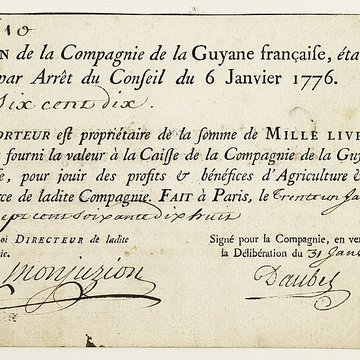 10
N de la Compagnie de la Guyane françaiſe, éta
par Arrêt du Conſeil du 6 Janvier 1776.
Six cent dix
ORTEUR eſt propriétaire de la ſomme de MILLE LIVR
fourni la valeur à la Caiſſe de la Compagnie de la Guy
e, pour jouir des profits & bénéfices d'Agriculture &
rce de ladite Compagnie. FAIT à Paris, le trente un Ja
sept cent soixante dix huit
oi DIRECTEUR de ladite
nie.
Signé pour la Compagnie, en ver
la Délibération du 31 Janv
Monjuzion
Daubet